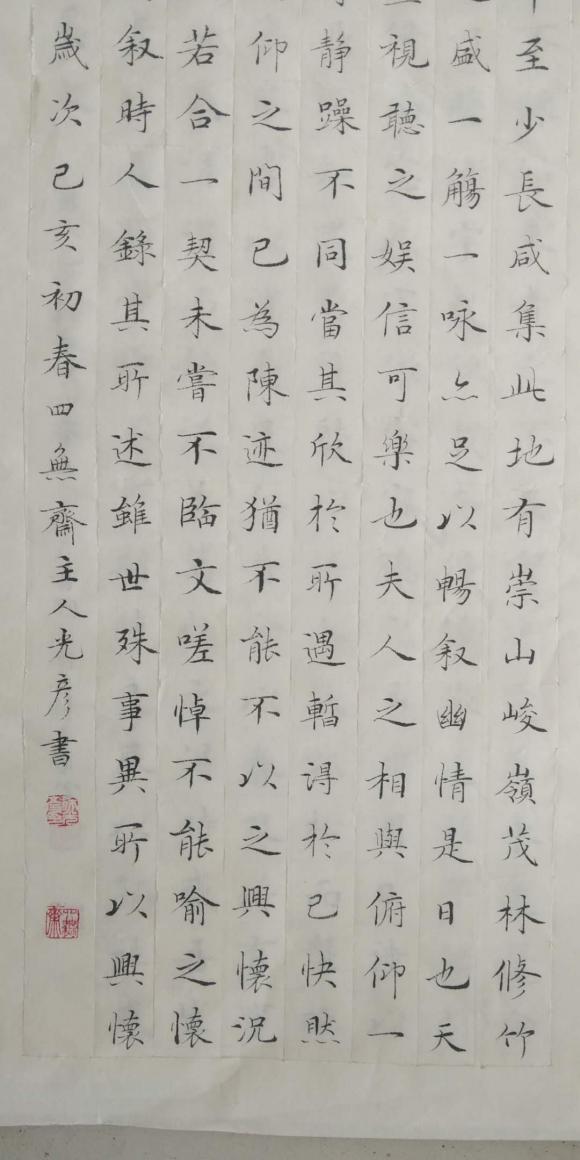 至少長咸集此地有崇山峻嶺茂林修竹
盛一觴一咏亦足以暢叙幽情是日也天
視聽之娱信可樂也夫人之相與俯仰一
静躁不同當其欣於所遇暫得於己快然
仰之間已為陳迹猶不能不以之興懷况
若合一契未嘗不臨文嗟悼不能喻之懷
叙時人錄其所述雖世殊事異所以興懷
歲次己亥初春四無齋主人光彦書